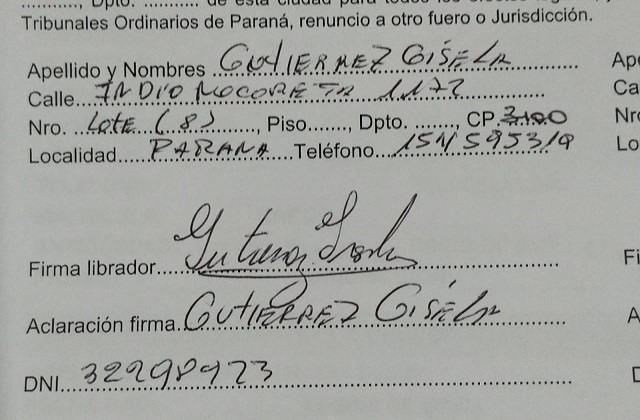 .........., Dpto. ........... de esta ciudad para todos los efectos
Tribunales Ordinarios de Paraná, renuncio a otro fuero o Jurisdicción.
Apellido y Nombres GUTIERREZ GISELA Ap
Calle INDIO MOCORETA 1172 Ca
Nro. LOTE (8), Piso......., Dpto. ......., CP. 3100 Nr
Localidad PARANA Teléfono Lo
Firma librador Gutierrez Gisela Fi
Aclaración firma. GUTIERREZ GISELA A
DNI 32298973 D